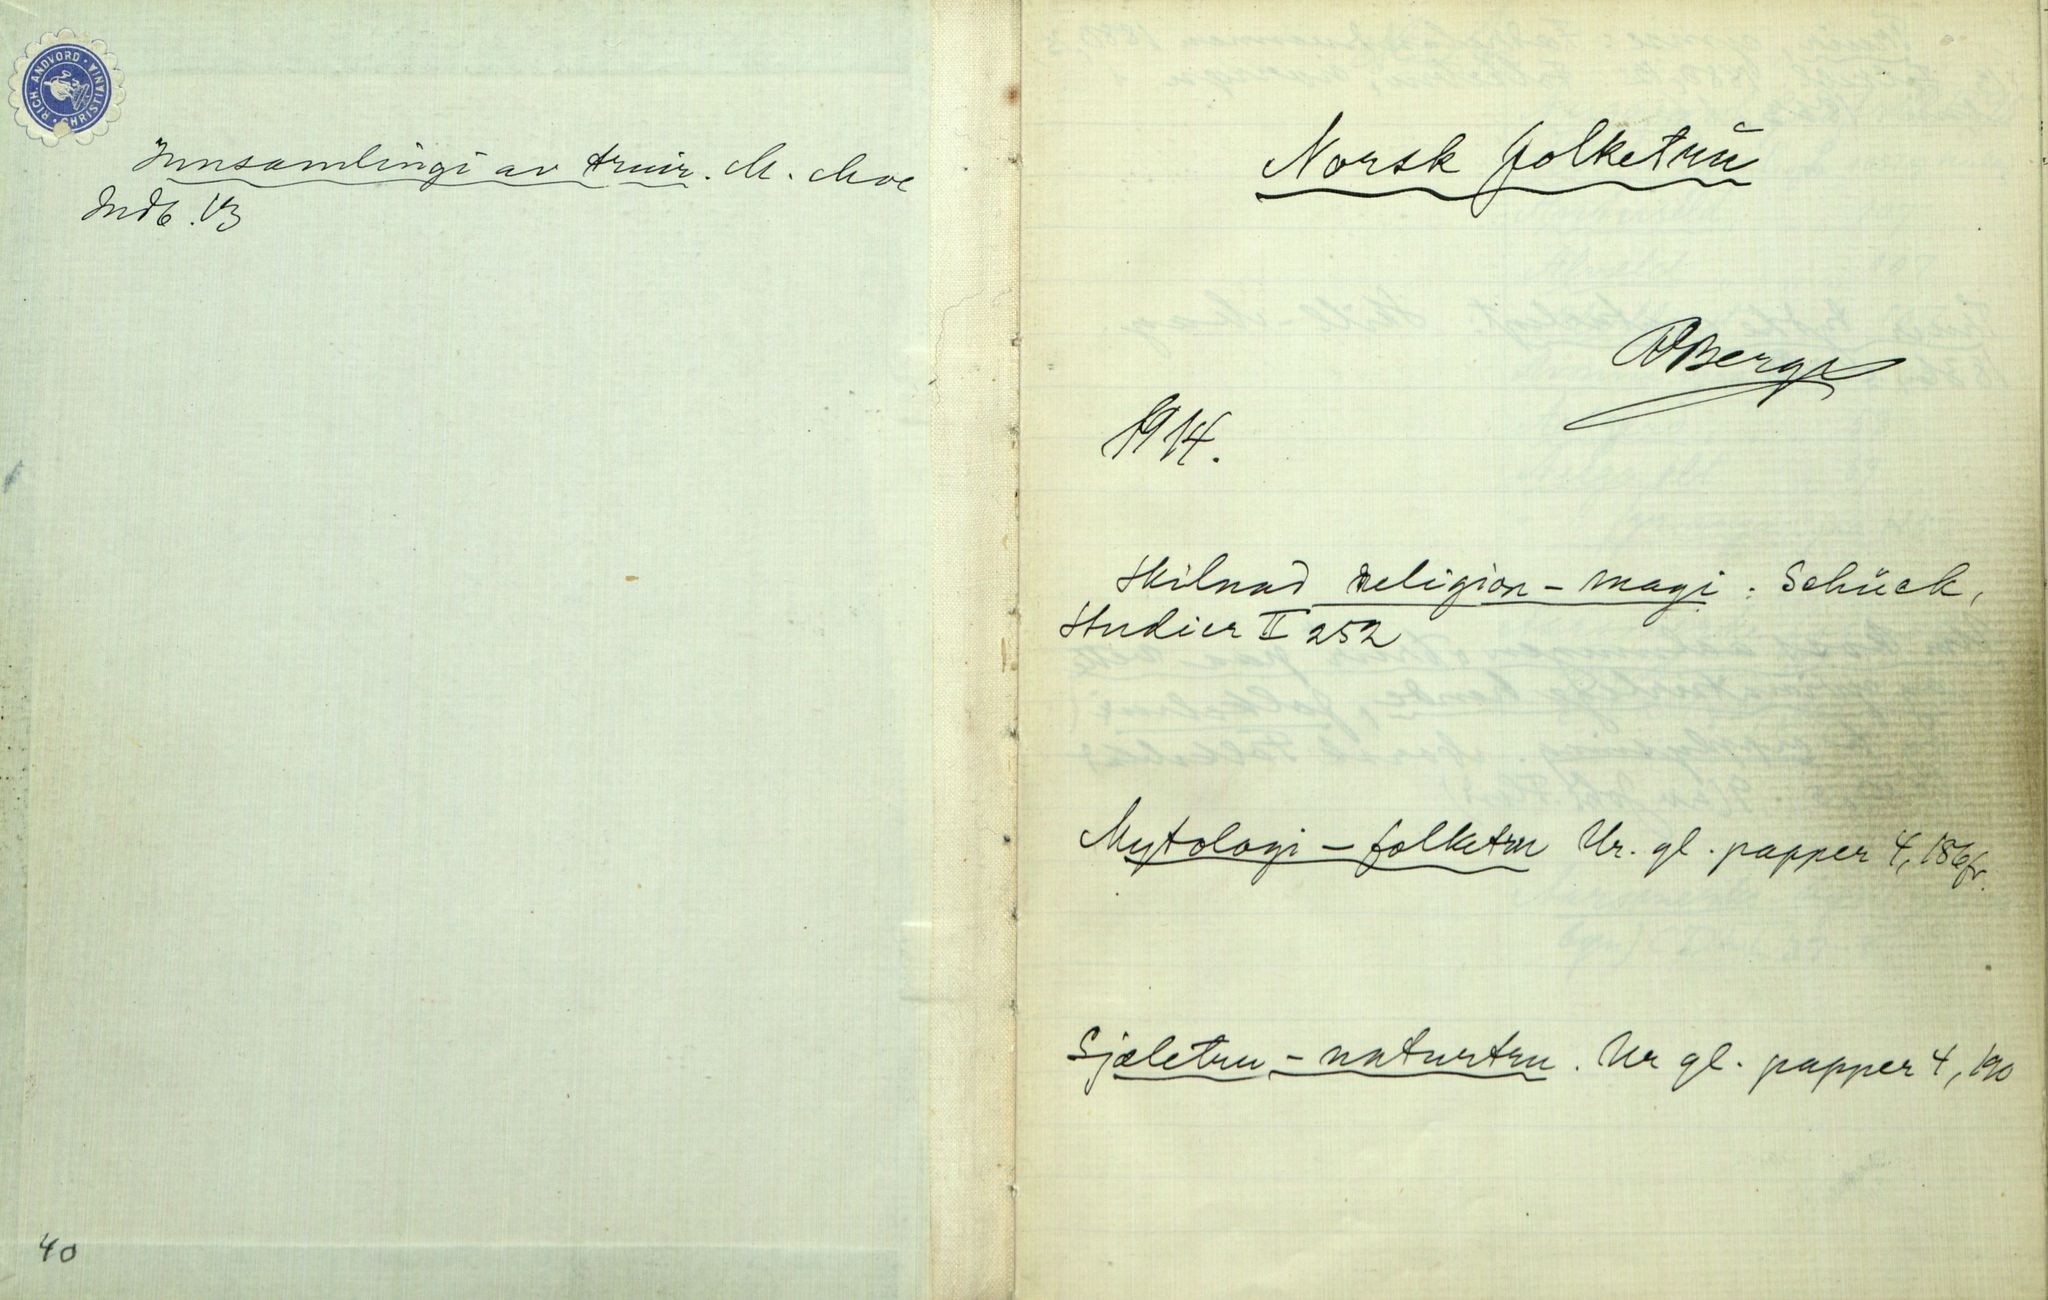 RICH. ANDVORD · CHRISTIANIA
Innsamlingi av truir. M. Moe
Indb. 13
40
Norsk folketru
RBerge
1914.
Skilnad religion – magi: Schück,
Studier II 252
Mytologi – folketru Ur. gl. papper 4, 186fr.
Sjæletru – naturtru. Ur gl. papper 4, 190